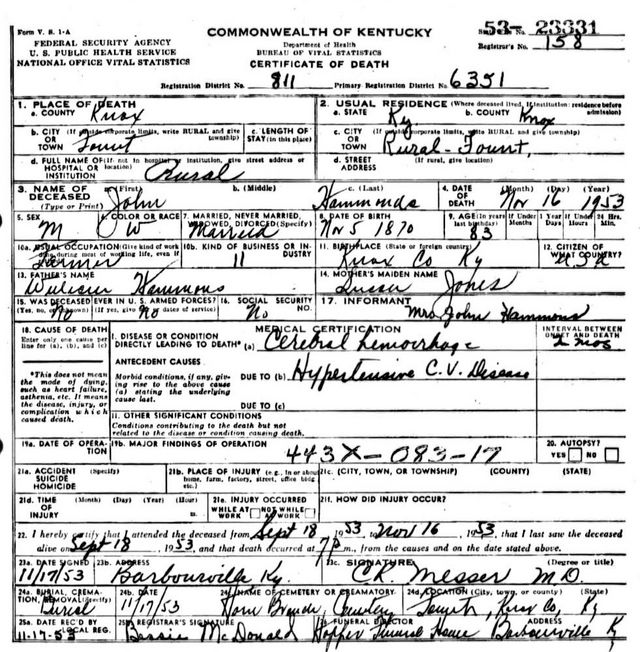 Form V. S. 1-A
FEDERAL SECURITY AGENCY
U. S. PUBLIC HEALTH SERVICE
NATIONAL OFFICE VITAL STATISTICS
COMMONWEALTH OF KENTUCKY
Department of Health
BUREAU OF VITAL STATISTICS
CERTIFICATE OF DEATH
53- 23331
Registrar's No. 158
Registration District No. 811 Primary Registration District No. 6351
1. PLACE OF DEATH
a. COUNTY Knox
2. USUAL RESIDENCE (Where deceased lived. If institution: residence before admission)
a. STATE Ky b. COUNTY Knox
b. CITY (If outside corporate limits, write RURAL and give township)
OR TOWN Fount
c. LENGTH OF STAY (in this place)
c. CITY (If outside corporate limits, write RURAL and give township)
OR TOWN Rural-Fount,
d. FULL NAME OF (If not in hospital or institution, give street address or location)
HOSPITAL OR INSTITUTION Rural
d. STREET ADDRESS (If rural, give location)
3. NAME OF DECEASED (Type or Print)
a. (First) John b. (Middle) c. (Last) Hammonds
4. DATE OF DEATH (Month) (Day) (Year) Nov 16 1953
5. SEX M
6. COLOR OR RACE W
7. MARRIED, NEVER MARRIED, WIDOWED, DIVORCED (Specify) Married
8. DATE OF BIRTH Nov 5 1870
9. AGE (In years last birthday) 83
If Under 1 Year Months Days
If Under 24 Hrs. Hours Min.
10a. USUAL OCCUPATION (Give kind of work done during most of working life, even if retired) Farmer
10b. KIND OF BUSINESS OR INDUSTRY 11
11. BIRTHPLACE (State or foreign country) Knox Co Ky
12. CITIZEN OF WHAT COUNTRY? U.S.A
13. FATHER'S NAME William Hammons
14. MOTHER'S MAIDEN NAME Jones
15. WAS DECEASED EVER IN U. S. ARMED FORCES? No
(If yes, give war or dates of service) No
16. SOCIAL SECURITY NO. No
17. INFORMANT Mrs John Hammons
18. CAUSE OF DEATH
Enter only one cause per line for (a), (b), and (c)
*This does not mean the mode of dying, such as heart failure, asthenia, etc. It means the disease, injury, or complication which caused death.
MEDICAL CERTIFICATION
INTERVAL BETWEEN ONSET AND DEATH
I. DISEASE OR CONDITION
DIRECTLY LEADING TO DEATH* (a) Cerebral hemorrhage 2 mos
ANTECEDENT CAUSES
Morbid conditions, if any, giving rise to the above cause (a) stating the underlying cause last.
DUE TO (b) Hypertensive C.V. Disease
DUE TO (c)
II. OTHER SIGNIFICANT CONDITIONS
Conditions contributing to the death but not related to the disease or condition causing death.
19a. DATE OF OPERATION
19b. MAJOR FINDINGS OF OPERATION
443X-083-17
20. AUTOPSY? YES NO
21a. ACCIDENT SUICIDE HOMICIDE (Specify)
21b. PLACE OF INJURY (e.g., in or about home, farm, factory, street, office bldg., etc.)
21c. (CITY, TOWN, OR TOWNSHIP) (COUNTY) (STATE)
21d. TIME OF INJURY (Month) (Day) (Year) (Hour)
21e. INJURY OCCURRED WHILE AT WORK NOT WHILE AT WORK
21f. HOW DID INJURY OCCUR?
22. I hereby certify that I attended the deceased from Sept 18 1953, to Nov 16, 1953, that I last saw the deceased
alive on Sept 18, 1953, and that death occurred at 7 p m., from the causes and on the date stated above.
23a. DATE SIGNED 11/17/53
23b. ADDRESS Barbourville Ky.
23c. SIGNATURE (Degree or title) C.R. Messer M.D.
24a. BURIAL, CREMATION, REMOVAL (Specify) Burial
24b. DATE 11/17/53
24c. NAME OF CEMETERY OR CREMATORY Horn Branch, Cemetery
24d. LOCATION (City, town, or county) (State) Fount, Knox Co, Ky
25a. DATE REC'D BY LOCAL REG. 11-17-53
25b. REGISTRAR'S SIGNATURE Bessie McDonald
FUNERAL DIRECTOR ADDRESS
Hopper Funeral Home Barbourville Ky